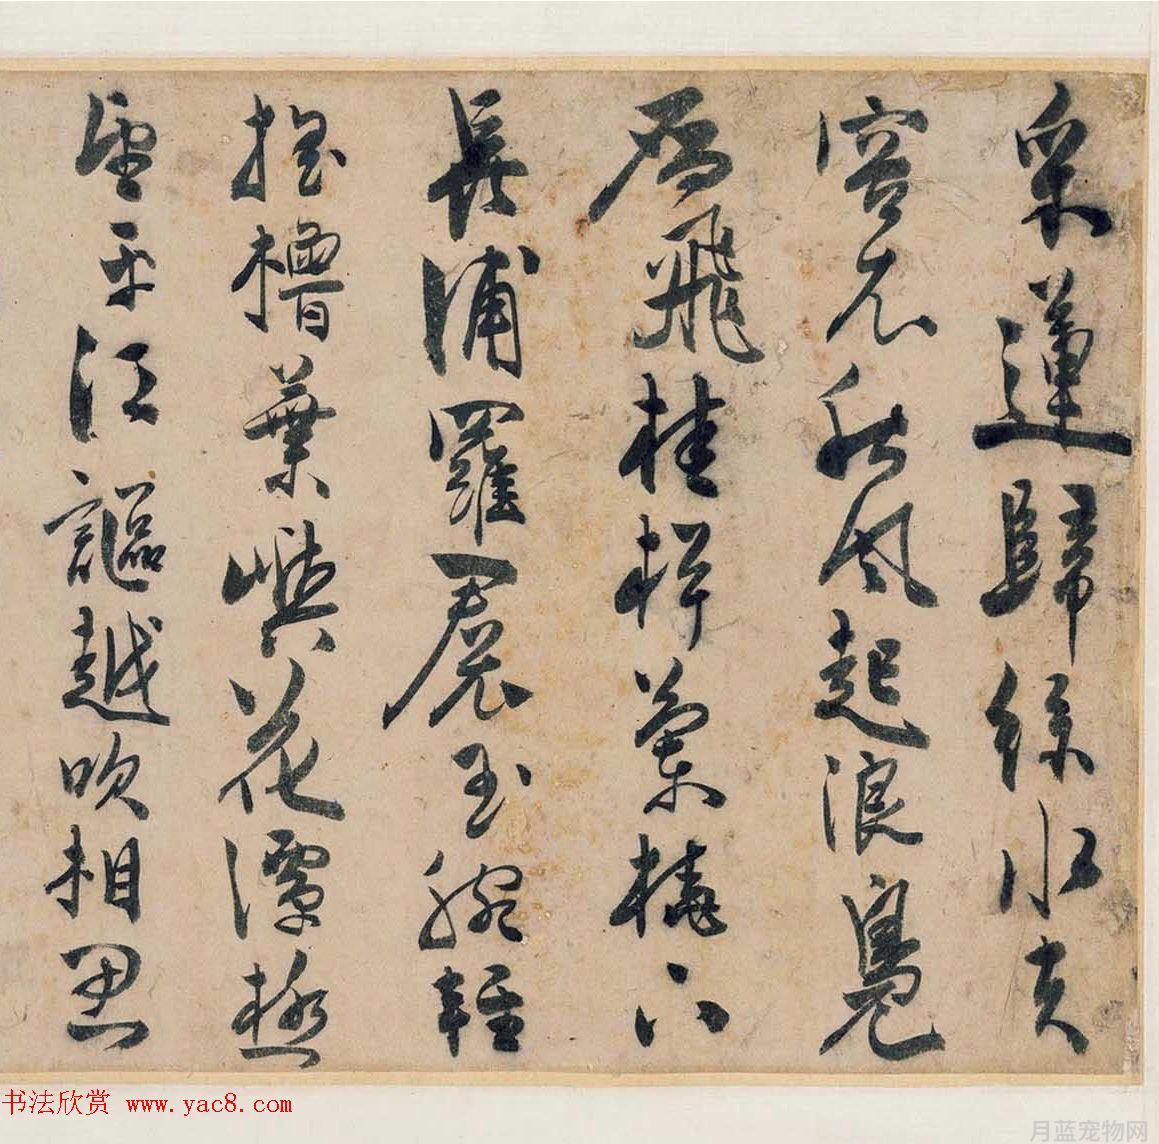 采蓮歸綠水芙
蓉衣秋風起浪鳧
鴈飛桂棹蘭橈下
長浦羅裙玉腕輕
搖櫓葉嶼花潭極
望平江謳越吹相思
书法欣赏 www.yac8.com
月蓝宠物网